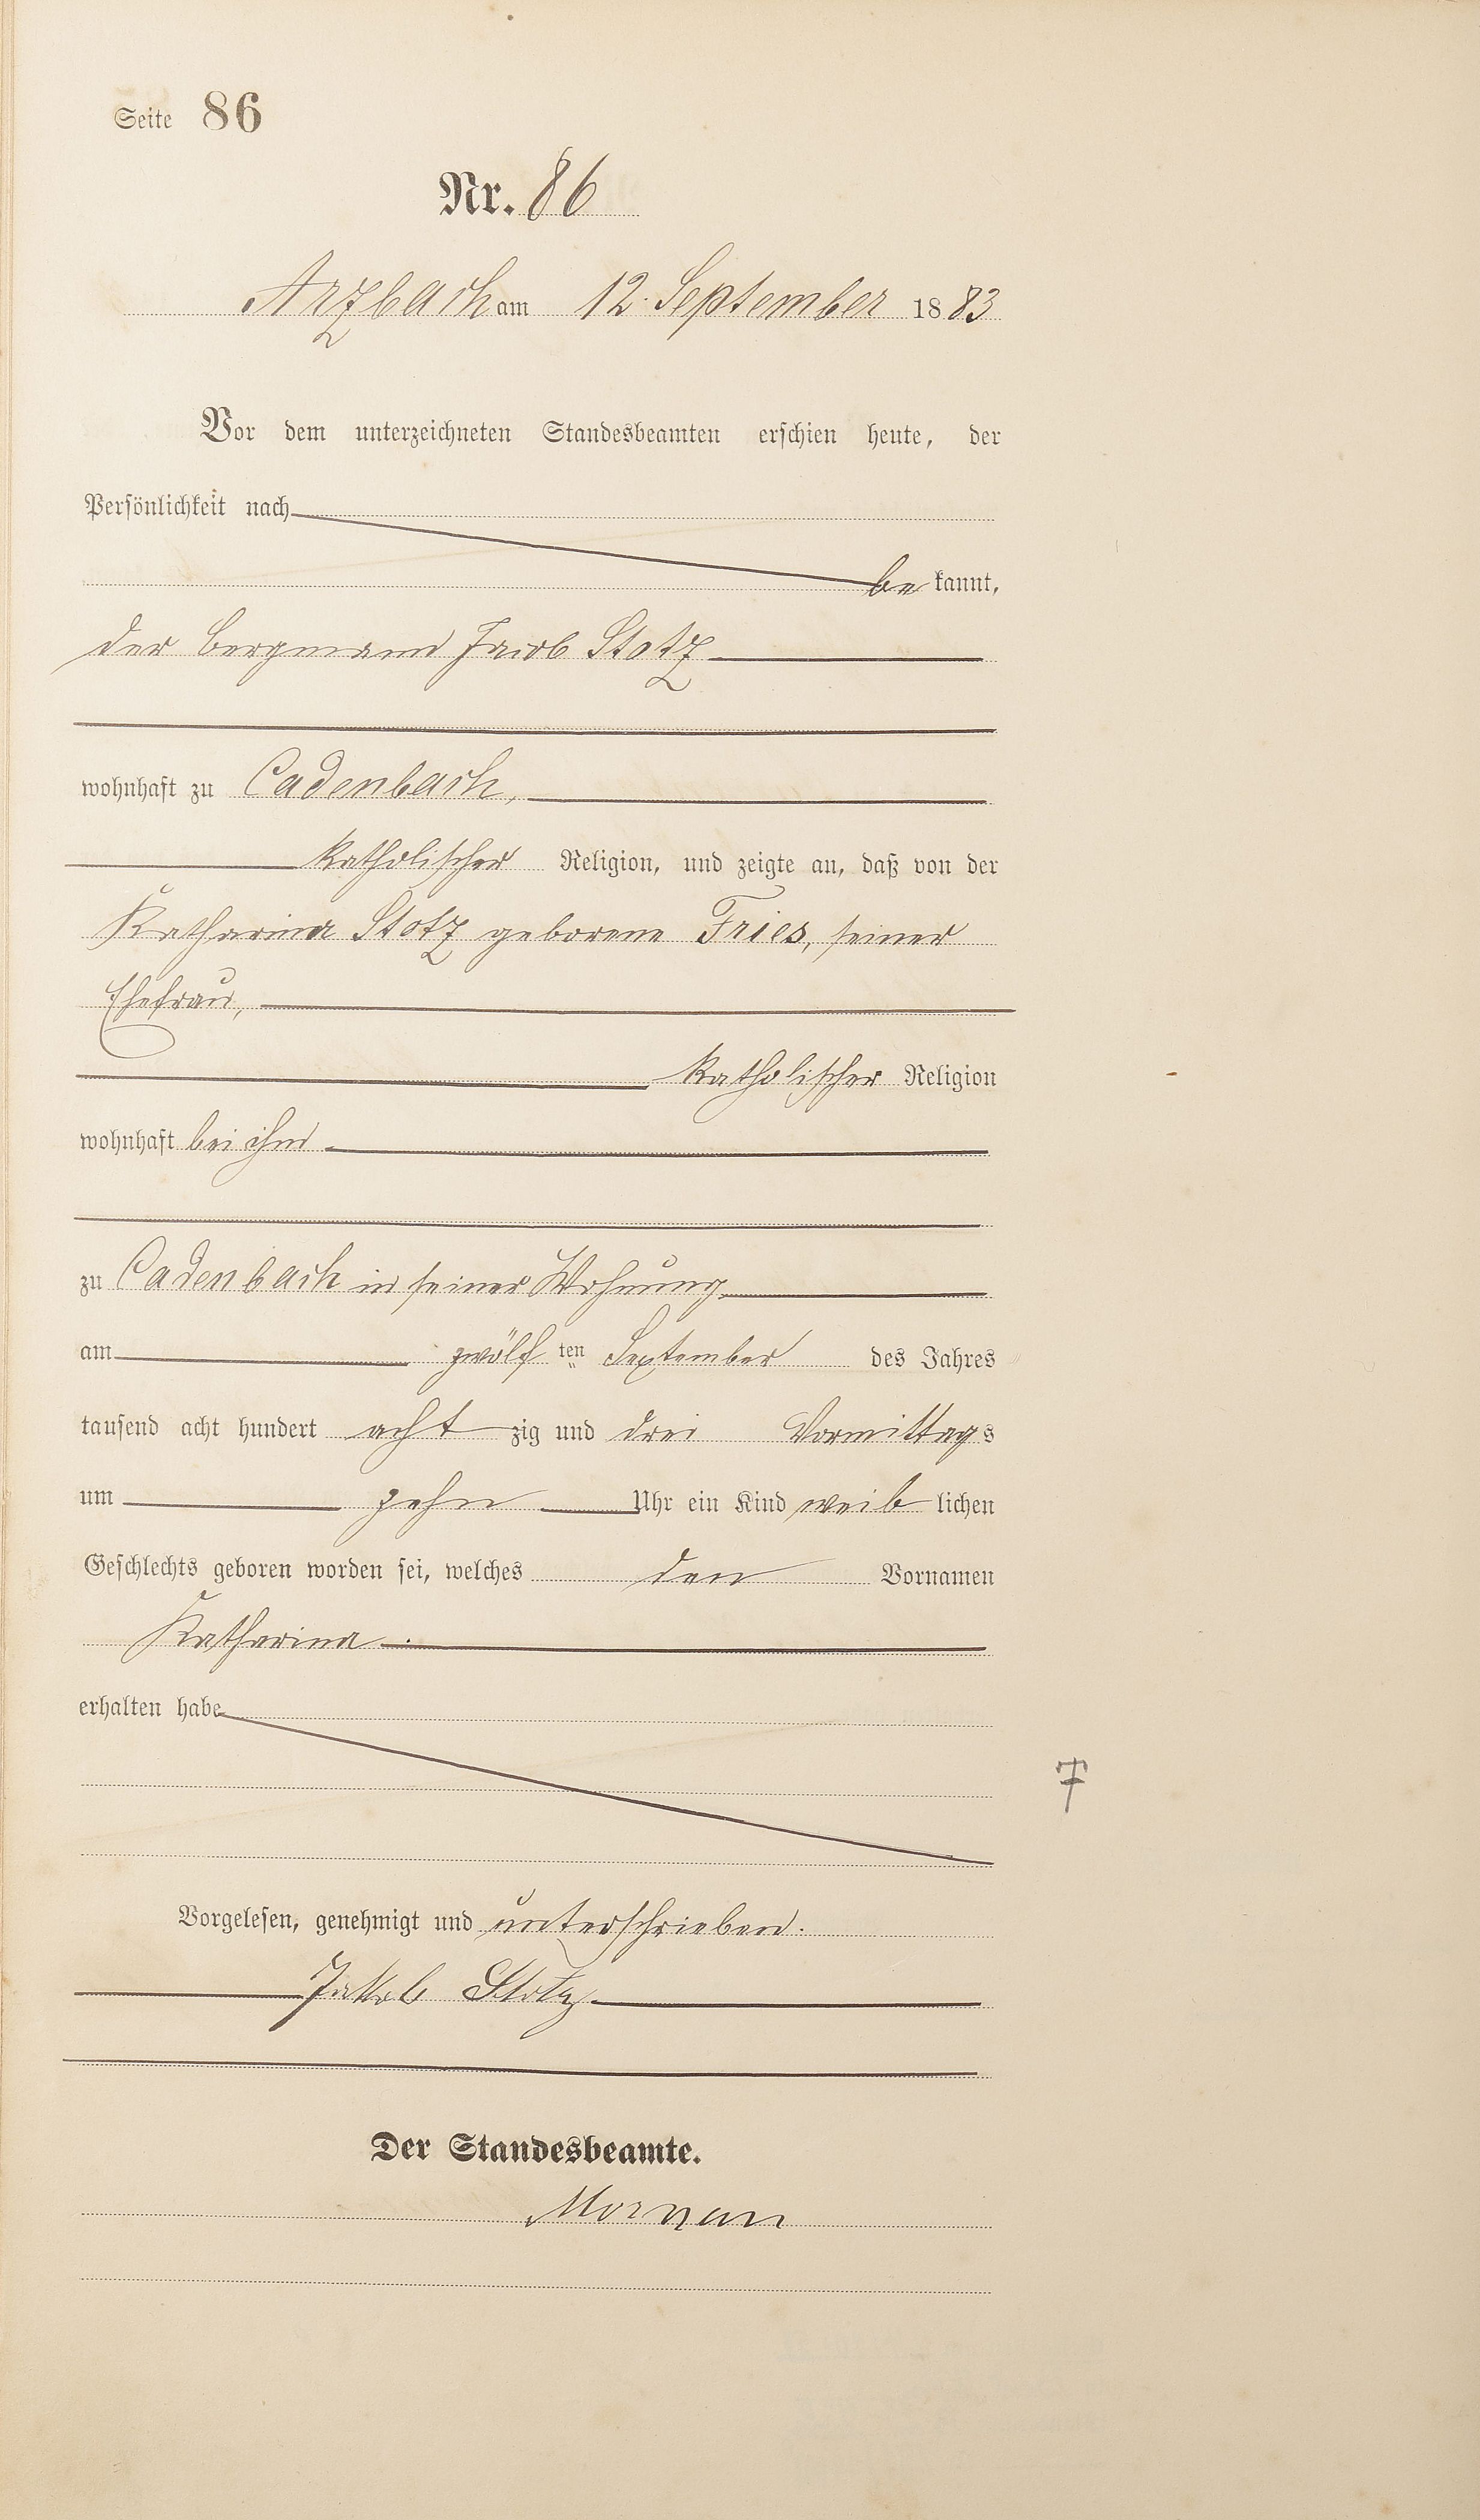 Seite 86
Nr. 86
Arzbach am 12. September 1883
Vor dem unterzeichneten Standesbeamten erschien heute, der
Persönlichkeit nach
be kannt,
der Bergmann Jacob Stotz
wohnhaft zu Cadenbach,
katholischer Religion, und zeigte an, daß von der
Katharina Stotz geborene Fries, seiner
Ehefrau,
katholischer Religion
wohnhaft bei ihm
zu Cadenbach in seiner Wohnung
am zwölf ten September des Jahres
tausend acht hundert acht zig und drei Vormittags
um zehn Uhr ein Kind weib lichen
Geschlechts geboren worden sei, welches den Vornamen
Katharina
erhalten habe
Vorgelesen, genehmigt und unterschrieben.
Jakob Stotz
Der Standesbeamte.